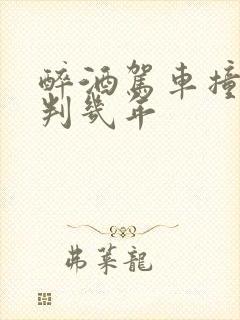 醉酒駕車撞
判幾年
弗萊龍